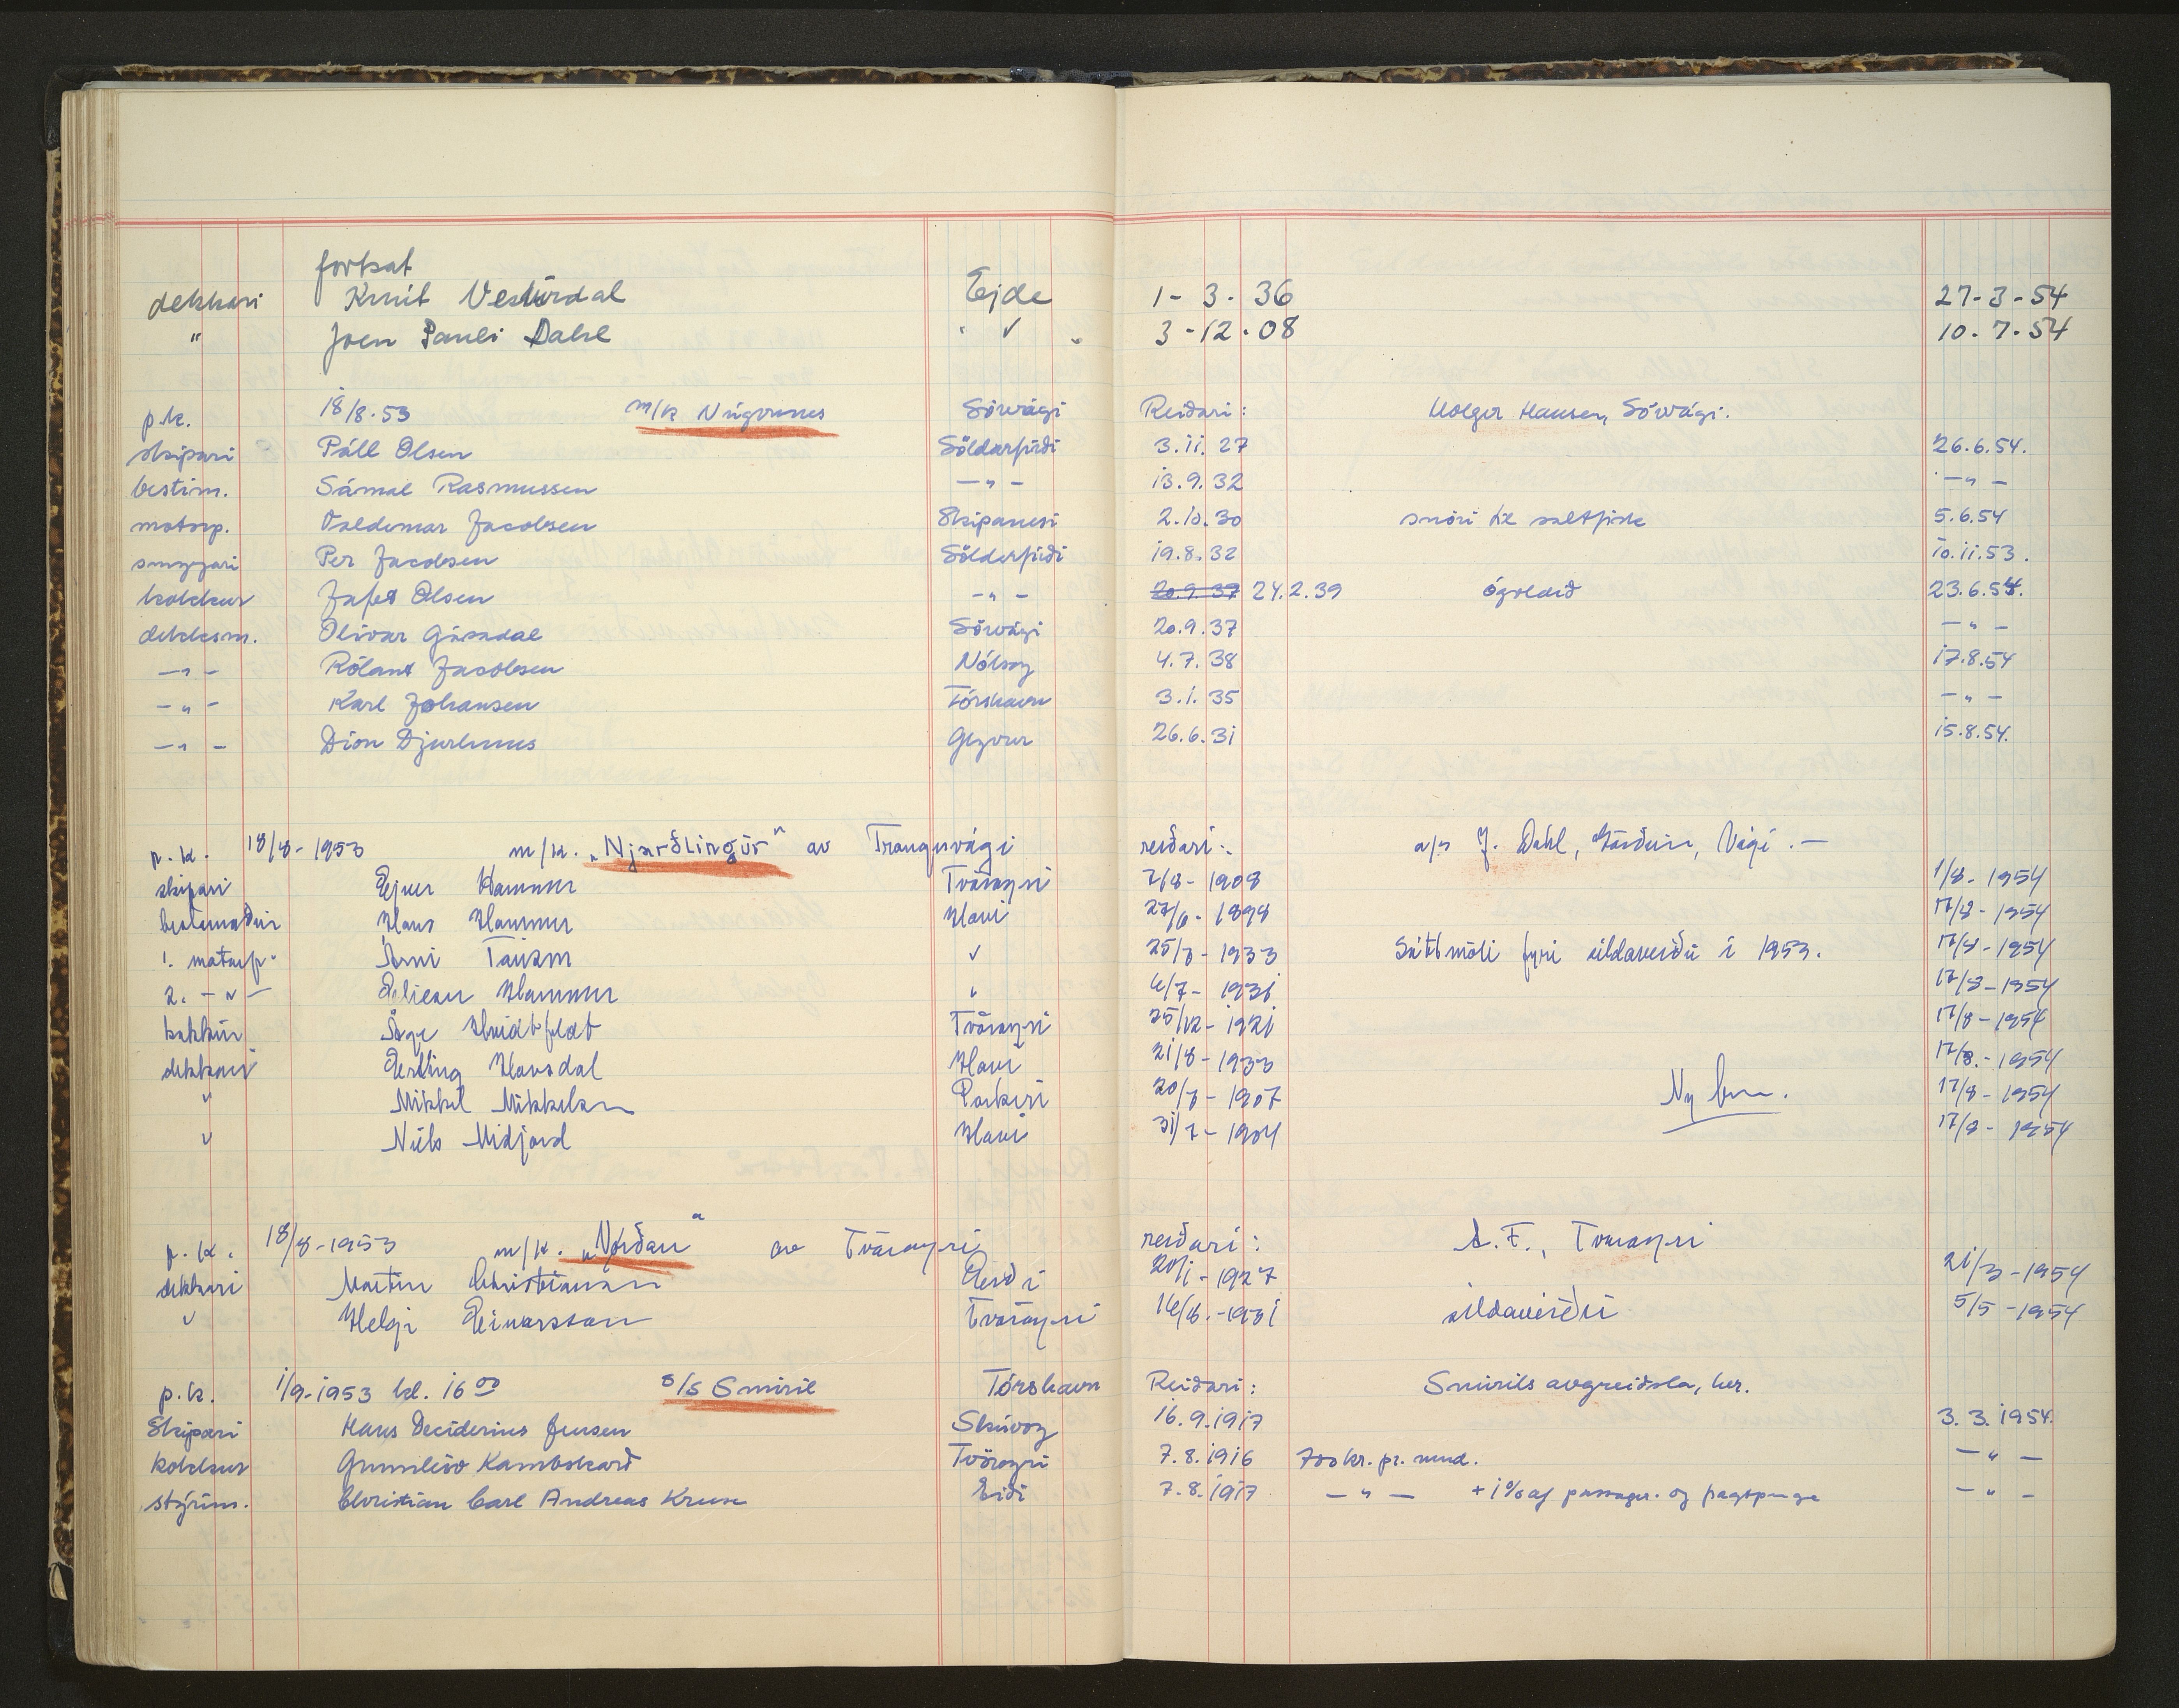 fortsat
dekkari Knút Vesturdal Ejde 1-3-36 27-3-54
" Joen Pauli Dahl " ✓ 3-12-08 10.7.54
p.k. 18/8.53 m/k Núgvunes Sörvági Reiðari: Holger Hansen, Sörvági.
skipari Páll Olsen Söldarfirði 3.11.27 26.6.54.
bestim. Sámal Rasmussen -"- 13.9.32 -"-
motorp. Valdemar Jacobsen Skipanesi 2.10.30 snöri til saltfisk 5.6.54
smyrjari Per Jacobsen Sölderfirði 19.8.32 10.11.53.
kokkur Jafet Olsen -"- 20.9.37 24.2.39 ógoldið 23.6.54.
dekksm. Olivar Gásadal Sörvági 20.9.37 -"-
-"- Rólant Jacobsen Nólsoy 4.7.38 17.8.54
-"- Karl Johansen Tórshavn 3.1.35 -"-
-"- Dion Djurhuus Glyvur 26.6.31 15.8.54.
p.k. 18/8-1953 m/k. „Njarðlingur" av Trongisvági reiðari: a/s J. Dahl, Vági.-
skipari Ejner Hammer Tvöroyri 7/8-1908 1/8-1954
bestamaður Hans Hammer Hovi 27/6-1898 17/8-1954
1. motorp. Árni Tausen ✓ 25/3-1933 Sáttmáli fyri sildaveiðu i 1953. 17/8-1954
2. -"- Hammer " 4/7-1931 17/8-1954
kokkur Åge Hvidtfeldt Tvöroyri 25/12-1921 17/8-1954
dekkari Erling Hovsdal Hovi 21/8-1933 17/8.-1954
" Mikkel Mikkelsen Porkeri 20/7-1907 17/8-1954
" Niels Midjord Hovi 31/7-1904 17/8-1954
p.k. 18/8-1953 m/k. „Norðan" av Tvöroyri reiðari: A.F., Tvöroyri
dekkari Martin Christiansen Eiði 20/1-1927 21/3-1954
" Helgi Einarsson Tvöroyri 16/6.-1931 sildaveiðu 5/5-1954
p.k. 1/9-1953 kl. 16 00 s/s Smiril Tórshavn Reiðari: Smirils avgreiðsla, her.
Skipari Hans Deciderius Jensen Skúvoy 16.9.1917 3.3.1954.
kokkur Gunnleiv Kambskarð Tvöroyri 7.8.1916 700 kr. pr. mnd. -"-
stýrim. Christian Carl Andreas Kruse Eiði 7.8.1917 -"- + 1% af passager. og fragtpenge -"-